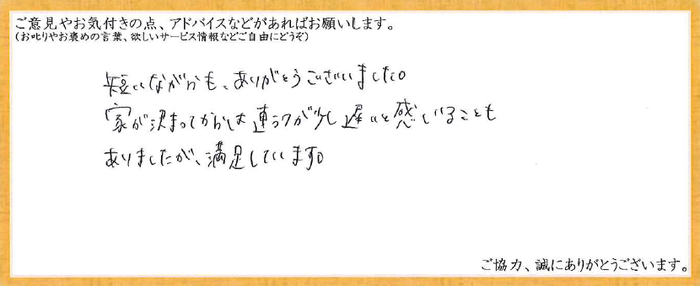 ご意見やお気付きの点、アドバイスなどがあればお願いします。
(お叱りやお褒めの言葉、欲しいサービス情報などご自由にどうぞ)
短いながらも、ありがとうございました。
家が決まってからは連ラクが少し遅いと感じていることも
ありましたが、満足しています。
ご協力、誠にありがとうございます。